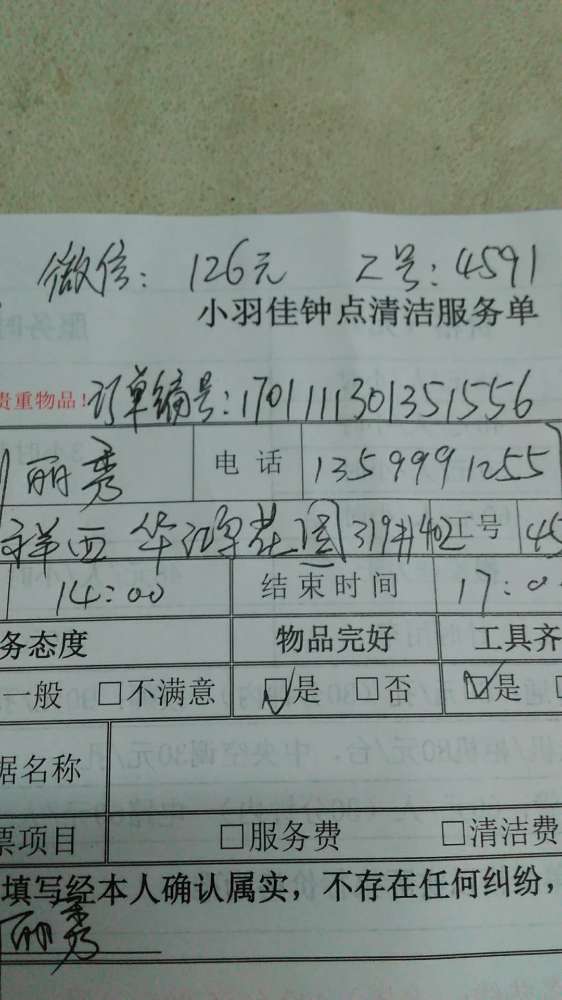 微信: 126元 工号: 4591
小羽佳钟点清洁服务单
贵重物品! 订单编号: 1701111301351556
丽秀 电话 13599991255
祥西 华鸿花园 319#402 工号 45
14:00 结束时间 17:0
务态度 物品完好 工具齐
一般 □不满意 ☑是 □否 ☑是
据名称
票项目 □服务费 □清洁费
填写经本人确认属实，不存在任何纠纷，
丽秀